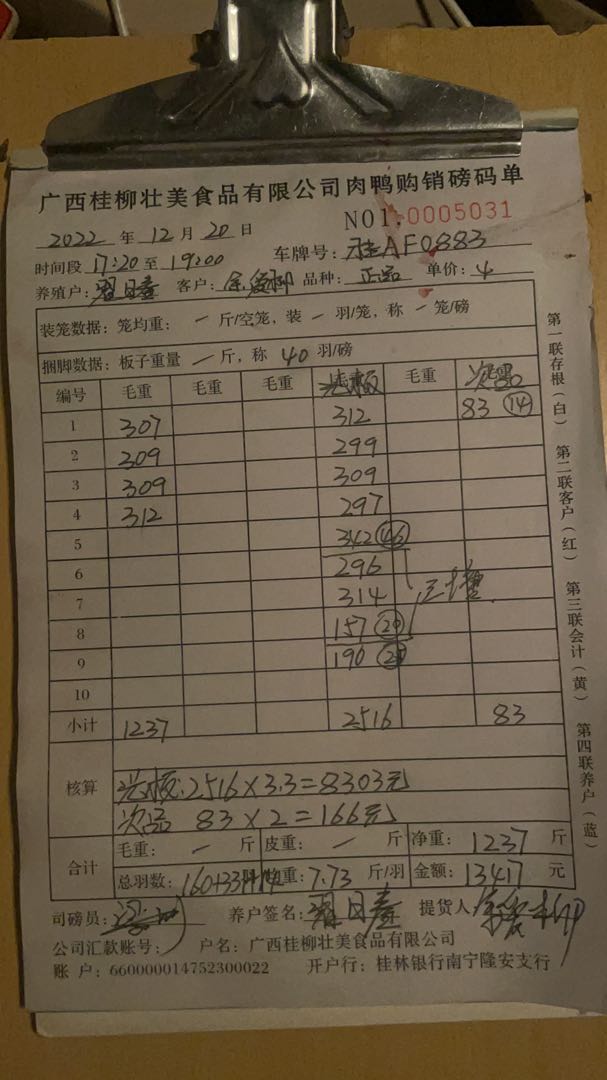 广西桂柳壮美食品有限公司肉鸭购销磅码单
NO1:0005031
2022 年 12 月 20 日
时间段 17:20 至 19:00 车牌号: 桂AF0883
养殖户: 客户: 品种: 正品 单价: 4
装笼数据: 笼均重: — 斤/空笼, 装 — 羽/笼, 称 — 笼/磅
捆脚数据: 板子重量 — 斤, 称 40 羽/磅
编号 毛重 毛重 毛重 毛重
1 307 312 83 (14)
2 309 299
3 309 309
4 312 297
5 342 (46)
6 296
7 314
8 157
9 190
10
小计 1237 2516 83
核算 2516×3.3=8303元
次品 83×2=166元
合计 毛重: — 斤 皮重: — 斤 净重: 1237 斤
总羽数: 重: 7.73 斤/羽 金额: 13417 元
司磅员: 养户签名: 提货人:
公司汇款账号: 户名: 广西桂柳壮美食品有限公司
账 户: 660000014752300022 开户行: 桂林银行南宁隆安支行
第一联存根(白) 第二联客户(红) 第三联会计(黄) 第四联养户(蓝)